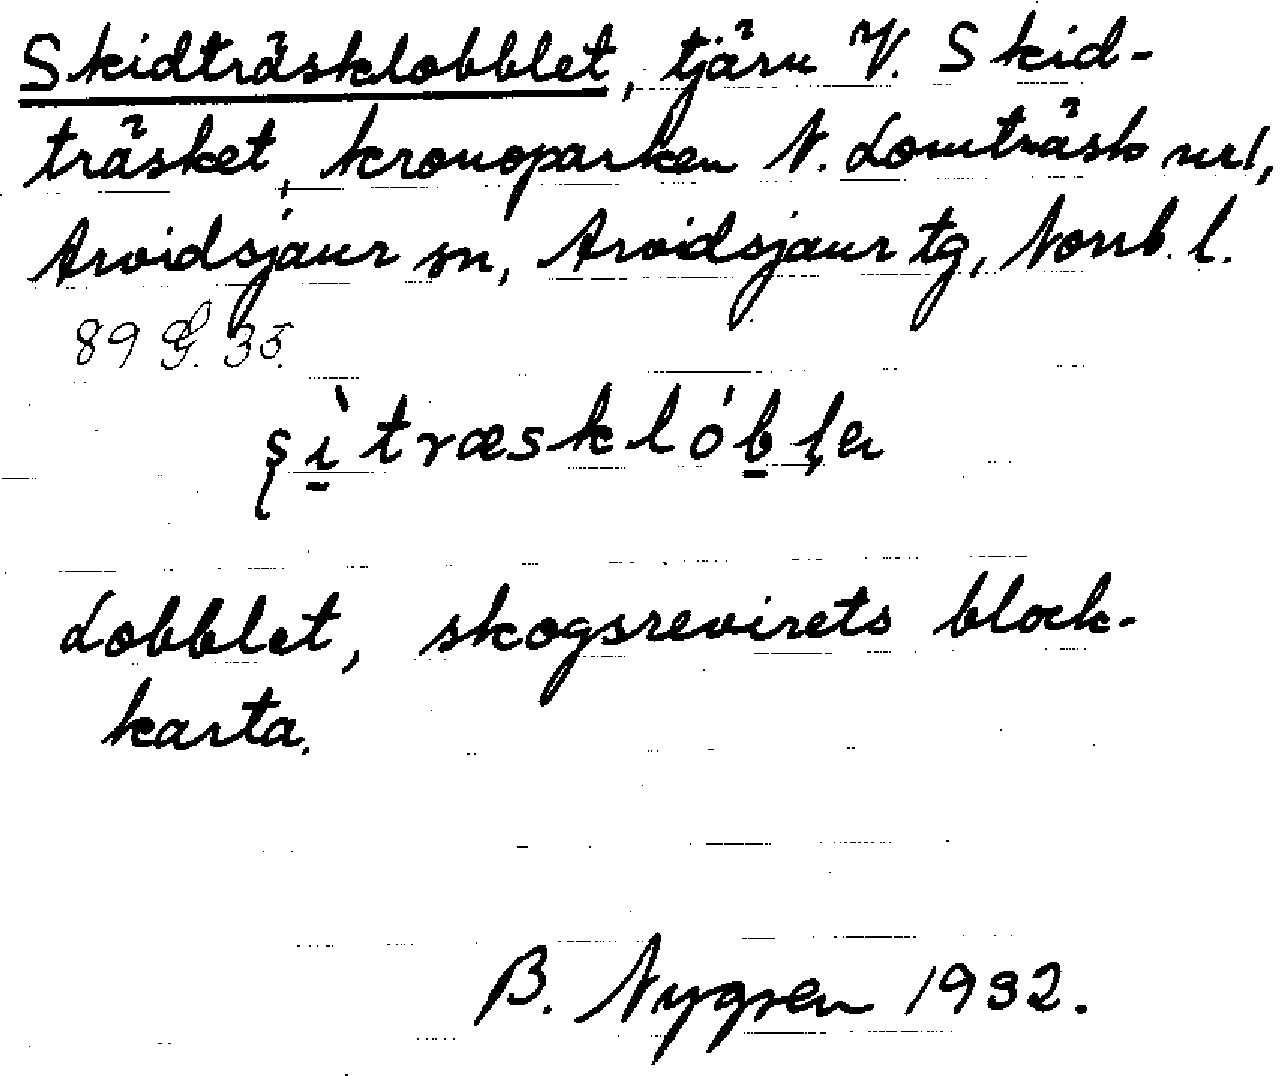 Skidträsklobblet, tjärn V. Skid-
träsket, kronoparken N. Lomträsk nr 1,
Arvidsjaur sn, Arvidsjaur tg, Norrb. l.
89 35.
lobblet, skogsrevirets block-
karta.
B. Nygren 1932.